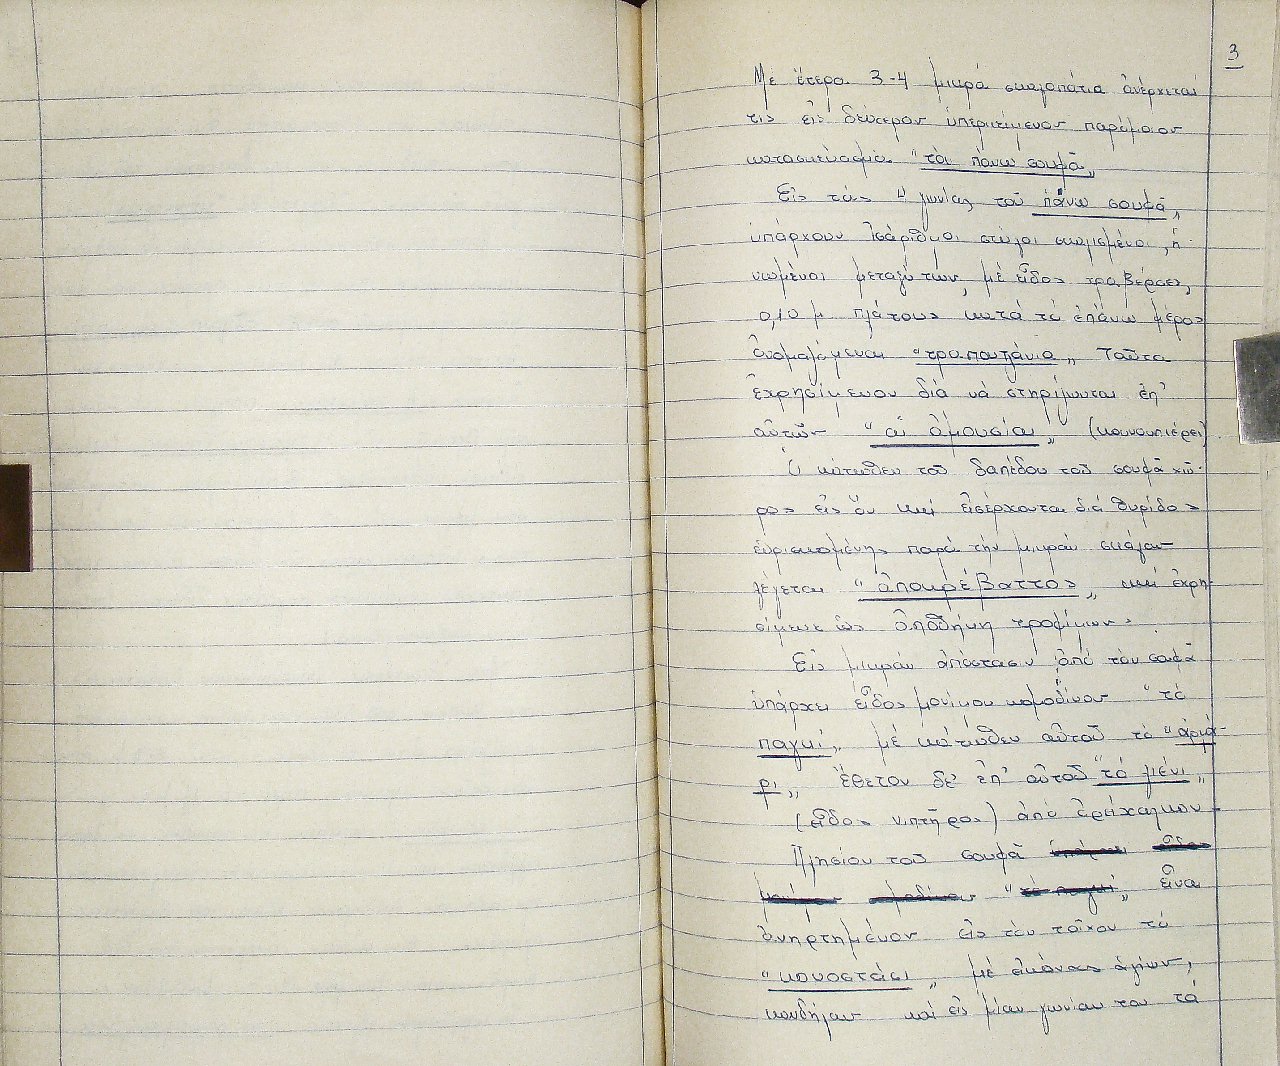 3
Μὲ ἕτερα 3-4 μικρά σκαλοπάτια ἀνέρχεται
τις εἰς δεύτερον ὑπερκείμενον παρόμοιον
κατασκεύασμα "τὸν πάνω σουφᾶ„
Εἰς τάς 4 γωνίας τοῦ πάνω σουφᾶ„
ὑπάρχουν ἰσάριθμοι στύλοι σκαλισμένοι, ἡ-
νωμένοι μεταξύ των, μὲ εἶδος τραβέρσας,
0,10 μ πλάτους κατά τὸ ἐπάνω μέρος
ὀνομαζόμεναι "τραπουζάνια„ Ταῦτα
ἐχρησίμευον διά νά στηρίζωνται ἐπ'
αὐτῶν "αἱ ἀμουσίαι„ (κουνουπιέρες).
Ὁ κάτωθεν τοῦ δαπέδου τοῦ σουφᾶ χῶ-
ρος εἰς ὅν καί εἰσέρχονται διά θυρίδος
εὑρισκομένης παρά τήν μικράν σκάλαν
λέγεται "ἀποκρέβαττος„ καί ἐχρη-
σίμευε ὡς ἀποθήκη τροφίμων.
Εἰς μικράν ἀπόστασιν ἀπό τόν σοφᾶ
ὑπάρχει εἶδος μονίμου κομοδίνου "τὸ
παγκί„ μέ κάτωθεν αὐτοῦ τὸ "ἀρμά-
ρι„ ἔθετον δέ ἐπ' αὐτοῦ "τὸ λιένι„
(εἶδος νιπτῆρος) ἀπό ὀρείχαλκον.
Πλησίον τοῦ σουφᾶ ὑπάρχει εἶδος
μονίμου κομοδίνου "τὸ παγκί„ εἶναι
ἀνηρτημένον εἰς τόν τοῖχον τό
"κονοστάσι„ μέ εἰκόνας ἁγίων,
κανδήλαν καί εἰς μίαν γωνίαν του τά